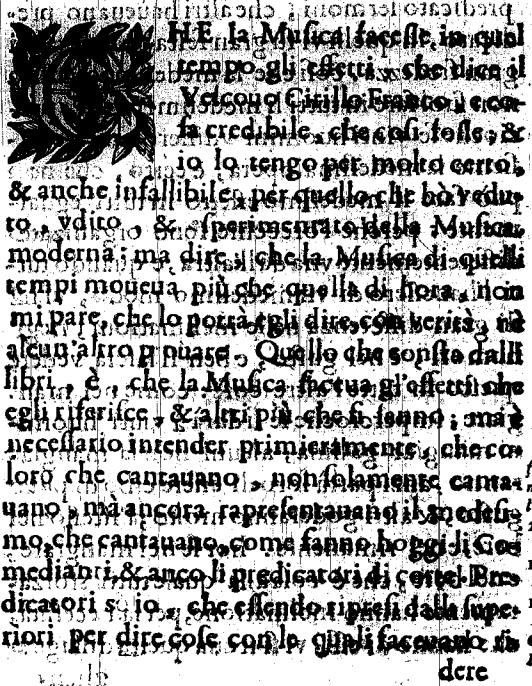 CHE la Musica facesse in quel
tempo gli effetti, che dice il
Vescouo Cirillo Franco, è co-
sa credibile, che così fosse; &
io lo tengo per molto certo,
& anche infallibile, per quello che hò vedu-
to, vdito, & sperimentato della Musica
moderna: ma dire, che la Musica di quelli
tempi moueua più che quella di hora, non
mi pare, che lo potrà egli dire con verità, nè
alcun'altro prouare. Quello che consta dalli
libri, è, che la Musica faceua gl'effetti che
egli riferisce, & altri più che si sanno; ma è
necessario intender primieramente, che co-
loro che cantauano, non solamente canta-
uano, mà ancora rapresentauano il medesi-
mo, che cantauano, come fanno hoggi li Co-
medianti, & anco li predicatori di corte. Pre-
dicatori sò io, che essendo ripresi dalli supe-
riori per dire cose con le quali faceuano ri-
dere